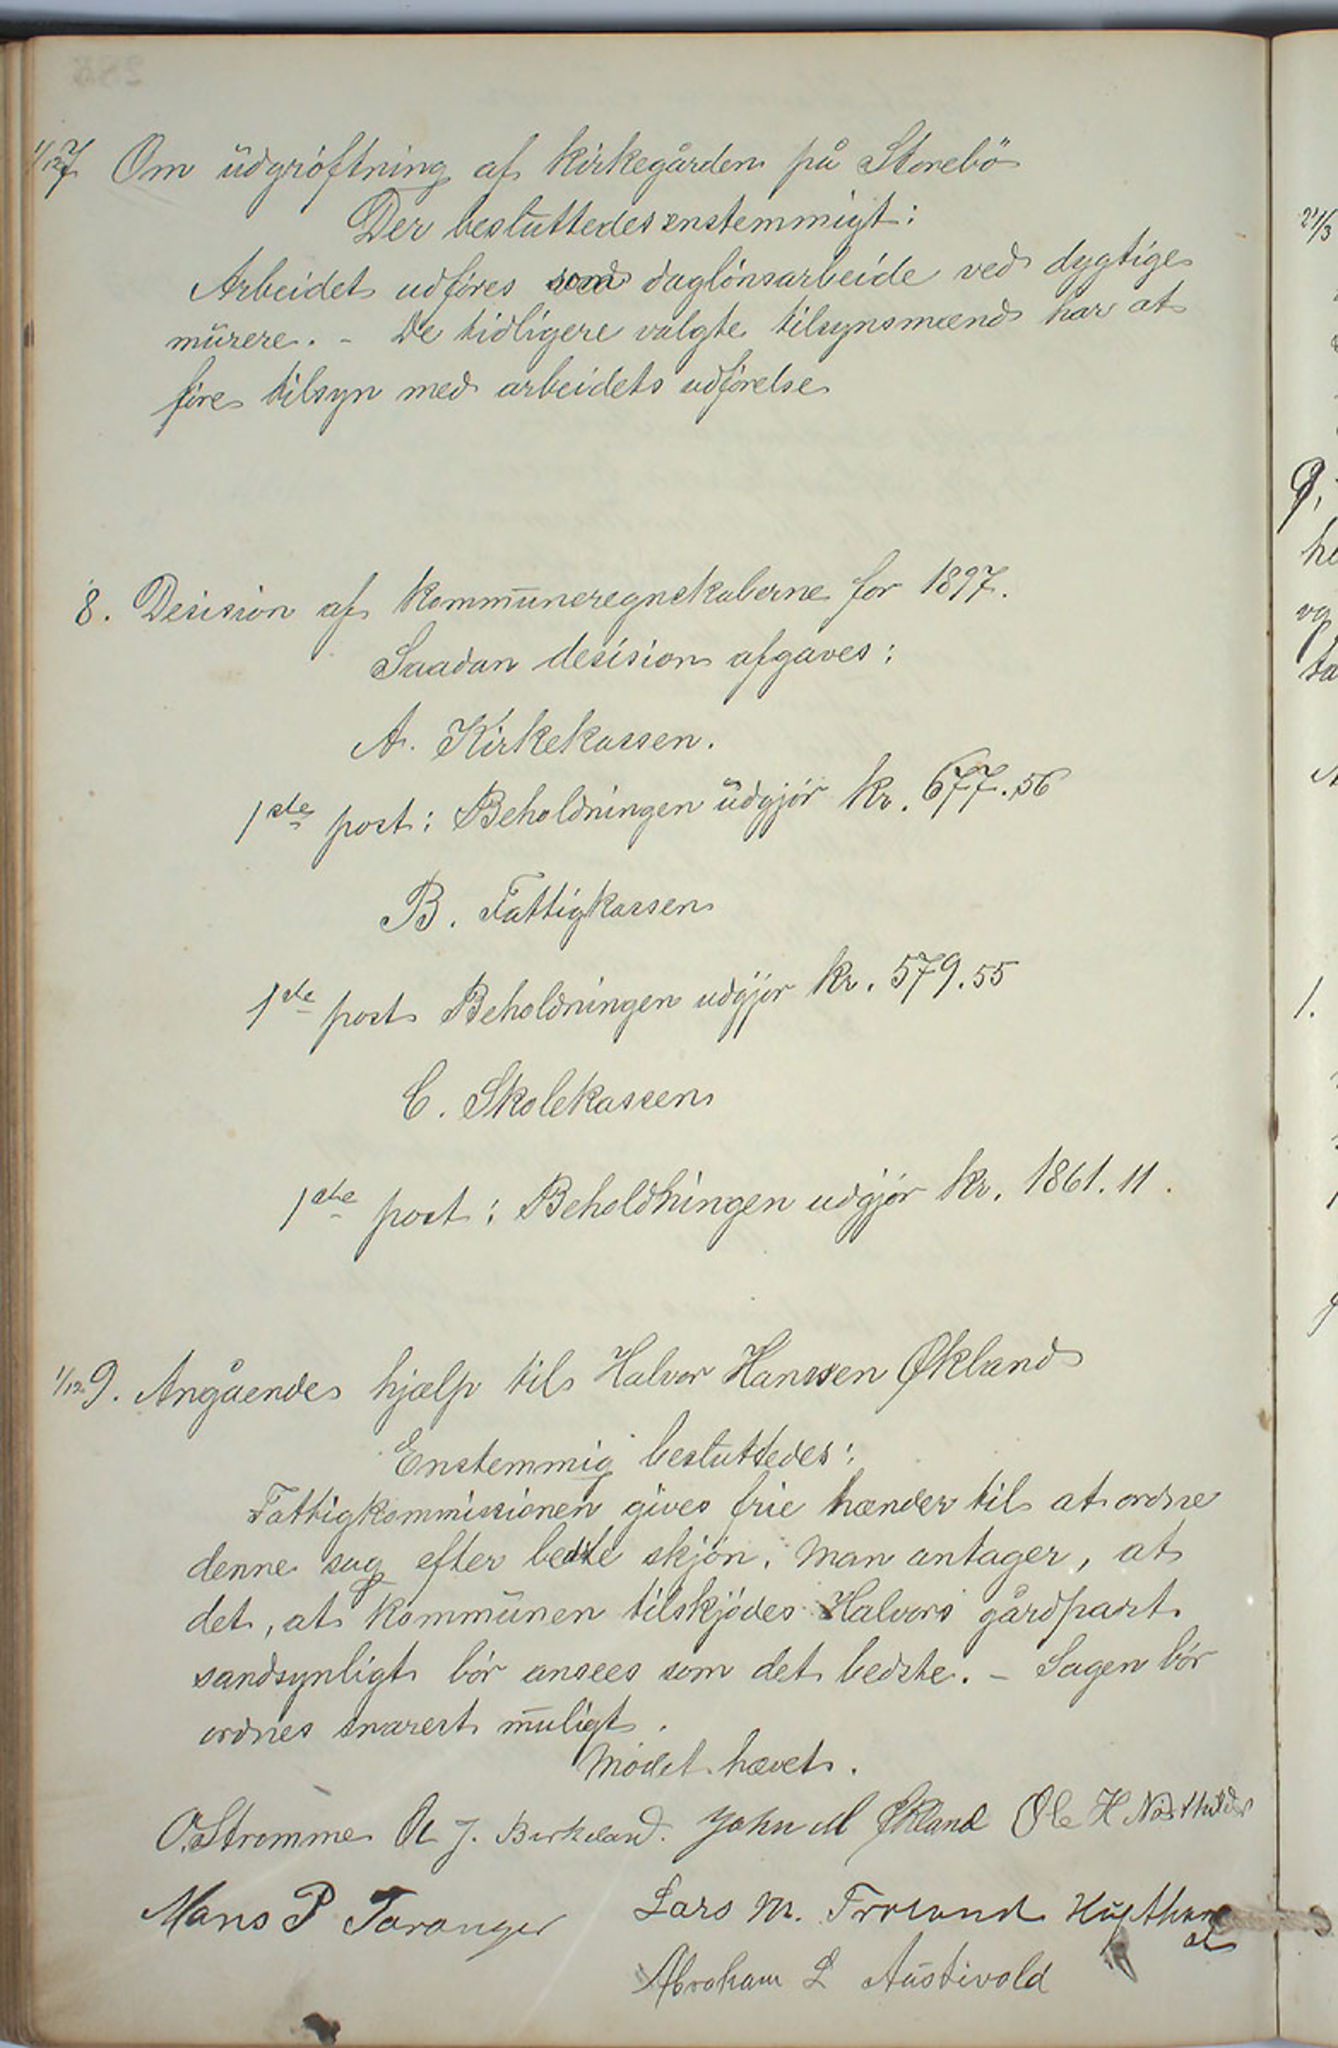 1/12 7 Om údgröftning af kirkegården på Storebö
Der besluttedes enstemmigt:
Arbeidet udföres som daglönsarbeide ved dygtige
múrere. - De tidligere valgte tilsynsmænd har at
före tilsyn med arbeidets udförelse
8. Desision af kommuneregnskaberne for 1897.
Saadan desision afgaves:
A. Kirkekassen.
1ste post: Beholdningen údgjör kr. 677.56
B. Fattigkassen
1ste post Beholdningen udgjör kr. 579.55
C. Skolekassen
1ste post: Beholdningen udgjör kr. 1861.11.
1/12 9. Angående hjælp til Halvor Hanssen Økland
Enstemmig besluttedes:
Fattigkommissionen gives frie hænder til at ordne
denne sag efter bedste skjön. Man antager, at
det, at kommúnen tilskjödes Halvors gårdpart
sandsynligt bör ansees som det bedste. - Sagen bör
ordnes snarest muligt.
Mödet hævet.
O. Strømme Ole J. Birkeland. John M Økland Ole H
Mons P Taranger Lars M. Huftham
Abraham L Austivold
27/3
1.